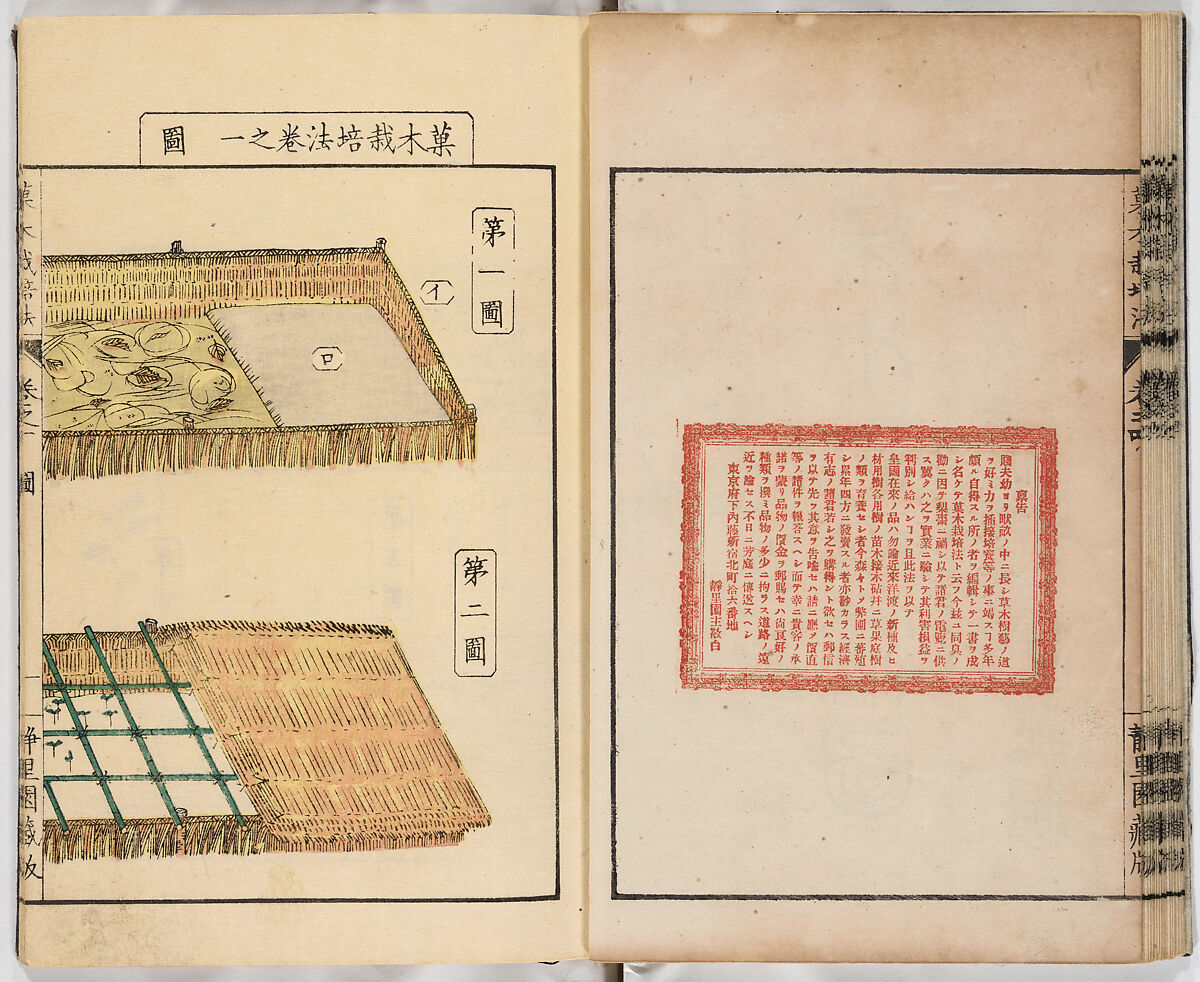 菓木栽培法
靜里園藏版
稟告
賤夫幼ヨリ畎畝ノ中ニ長シ草木樹藝ノ道
ヲ好ミ力ヲ插接培養等ノ事ニ竭スヿ多年
頗ル自得スル所ノ者ヲ編輯シテ一書ヲ成
シ名ケテ菓木栽培法ト云フ今玆ニ同臭ノ
勸ニ因テ梨棗ニ禍シ以テ諸君ノ電覽ニ供
ス冀クハ之ヲ實業ニ驗シテ其利害損益ヲ
判別シ給ハンヿヲ且此法ヲ以テ
皇國在來ノ品ハ勿論近來洋渡ノ新種及ヒ
材用樹各用樹ノ苗木接木砧幷ニ草果庭樹
ノ類ヲ育養セシ者今森々トノ弊園ニ蕃殖
シ累年四方ニ發賣スル者亦尠カラス經濟
有志ノ諸君若シ之ヲ購得シト欲セハ郵信
ヲ以テ先ツ其意ヲ告喩セハ請ニ應ノ價直
等ノ諸件ヲ報答スヘシ而テ幸ニ貴客ノ承
諾ヲ蒙リ品物ノ價金ヲ郵賜セハ尚良好ノ
種類ヲ撰ミ品物ノ多少ニ拘ラス道路ノ遠
近ヲ論セス不日ニ芳庭ニ傳送スヘシ
東京府下內藤新宿北町拾六番地
靜里園主敬白
菓木栽培法卷之一 圖
第一圖
イ
ロ
第二圖
菓木栽培法 卷之一 圖 一 靜里園藏版